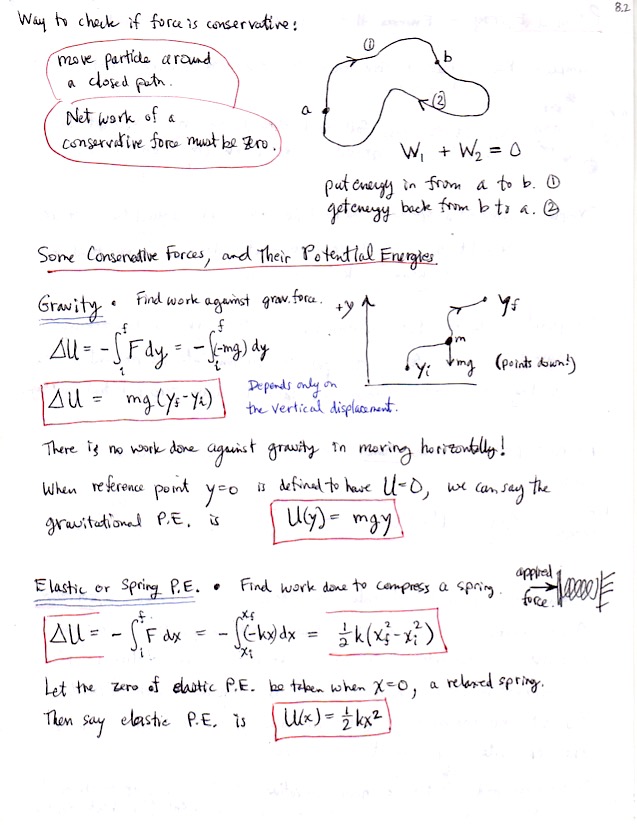 8.2
Way to check if force is conservative:
move particle around
a closed path.
Net work of a
conservative force must be zero.
① b
a ②
W₁ + W₂ = 0
put energy in from a to b. ①
get energy back from b to a. ②
Some Conservative Forces, and Their Potential Energies
Gravity • Find work against grav. force.
+y yf
m
yi mg (points down!)
ΔU = -∫ᵢᶠ F dy = -∫ᵢᶠ (-mg) dy
ΔU = mg(yf - yi)
Depends only on
the vertical displacement.
There is no work done against gravity in moving horizontally!
When reference point y=0 is defined to have U=0, we can say the
gravitational P.E. is U(y) = mgy
Elastic or Spring P.E. • Find work done to compress a spring.
applied
force
ΔU = -∫ᵢᶠ F dx = -∫ₓᵢˣᶠ (-kx) dx = ½k(xf² - xi²)
Let the zero of elastic P.E. be taken when x=0, a relaxed spring.
Then say elastic P.E. is U(x) = ½kx²